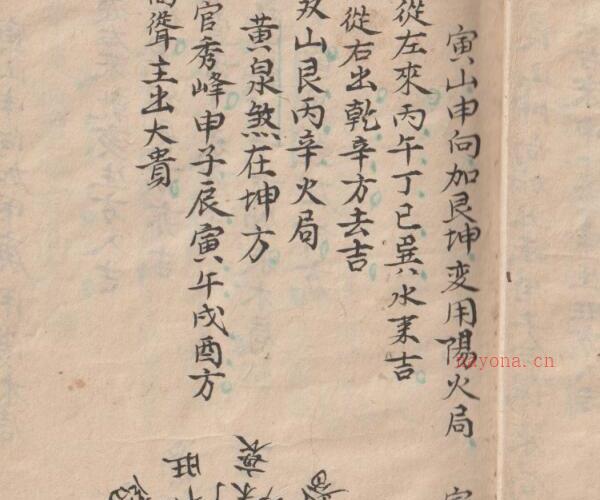 寅山申向加艮坤変用陽火局
從左來丙午丁巳巽水来吉
從右出乾辛方去吉
山艮丙辛火局
黄泉煞在坤方
官秀峰申子辰寅午戌酉方
高聳主出大貴
衰
旺
ndyona.cn